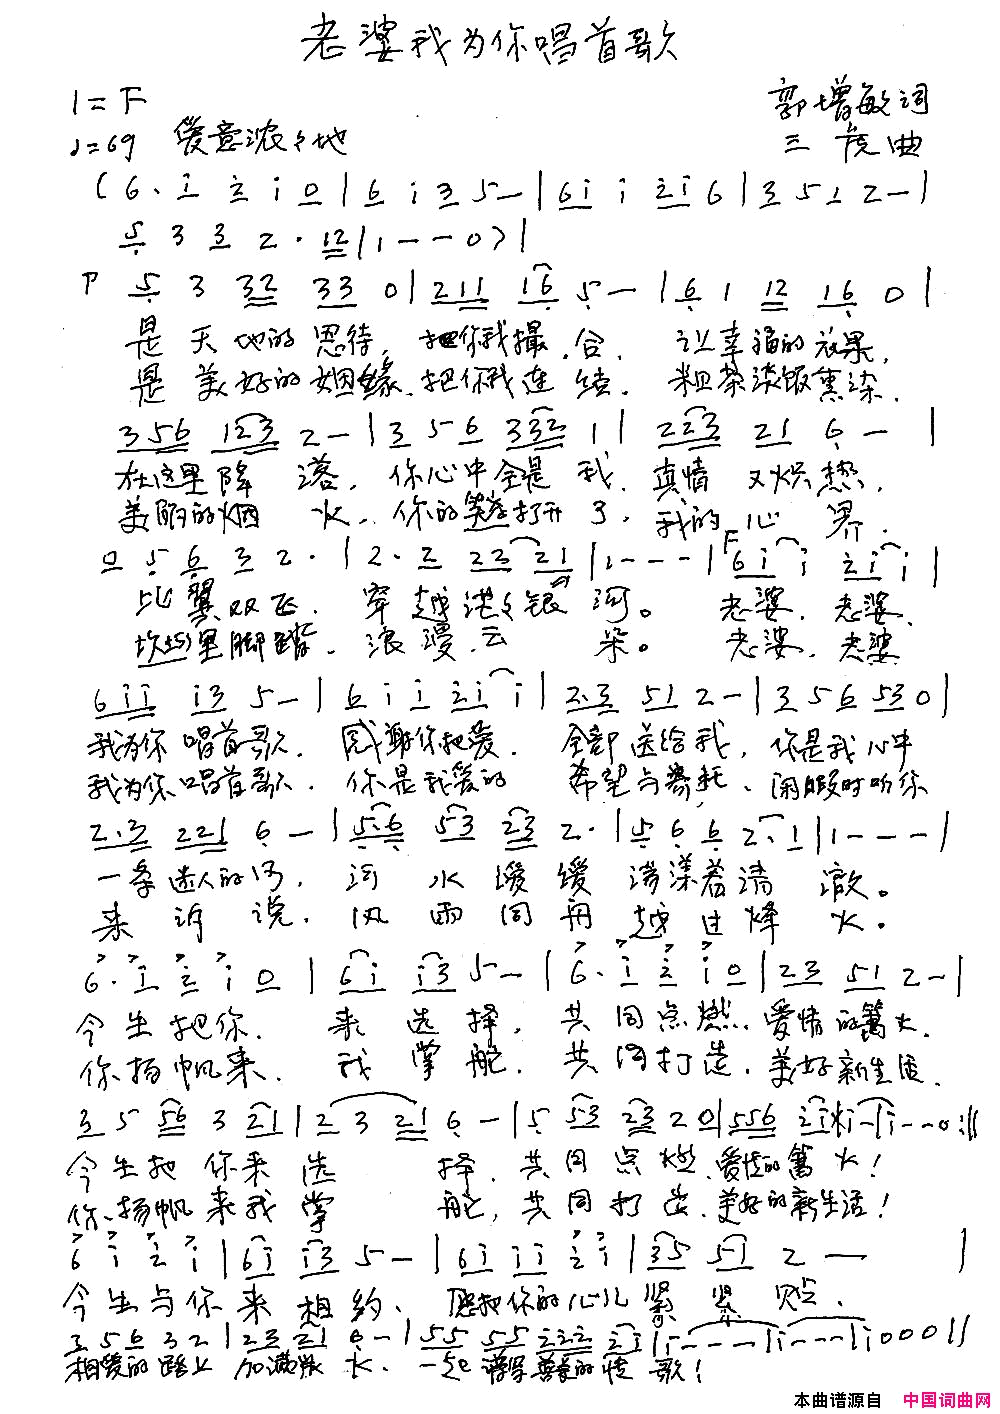 老婆我为你唱首歌
1=F
郭增敏词
♩=69 爱意浓々地
三 虎 曲
(6· i 2 i 0|6 i 3 5-|6i i 2i 6|3 5 1 2-|
5 3 3 2· 12|1--0)|
5 3 32 33 0|211 16 5-|6 1 12 16 0|
是天地的恩待,把你我撮合,让幸福的效果,
是美好的姻缘,把你我连结,粗茶淡饭熏染,
356 123 2-|3 5 6 332 1|223 21 6-|
在这里降落,你心中全是我,真情又炽热,
美丽的烟火,你的笑 打开了,我的心界,
0 5 6 3 2·|2·2 23 21|1---|6i i 2i i|
比翼双飞,穿越 银河。老婆,老婆,
坎坷里脚踏,浪漫云朵。老婆,老婆
6ii i3 5-|6 i i 2i i|2·3 51 2-|3 5 6 53 0|
我为你唱首歌,感谢你把爱,全部送给我,你是我心中
我为你唱首歌,你是我爱的希望与寄托,闲暇时听你
2·3 221 6-|5·6 53 23 2·|5 6 6 2·1|1---|
一条迷人的河,河水缓缓荡漾着清澈。
来诉说,风雨同舟越过烽火。
6· i 2 i 0|6i i3 5-|6· i 2 i 0|23 51 2-|
今生把你,来选择,共同点燃,爱情的篝火,
你扬帆来,我掌舵,共同打造,美好新生活,
3 5 56 3 21|2 3 21 6-|5 53 23 20|556
今生把你来选择,共同点燃,爱情的篝火!
你扬帆来我掌舵,共同打造,美好的新生活!
6 i 2 i|6i i3 5-|6i ii 2i|35 51 2—|
今生与你来相约,愿把你的心儿紧紧贴,
3 5 6 32|23 21 6-|55 55 222 2i|i---|i---|i000||
相爱的路上加满 水,一起谱写 的情歌!
本曲谱源自 中国词曲网